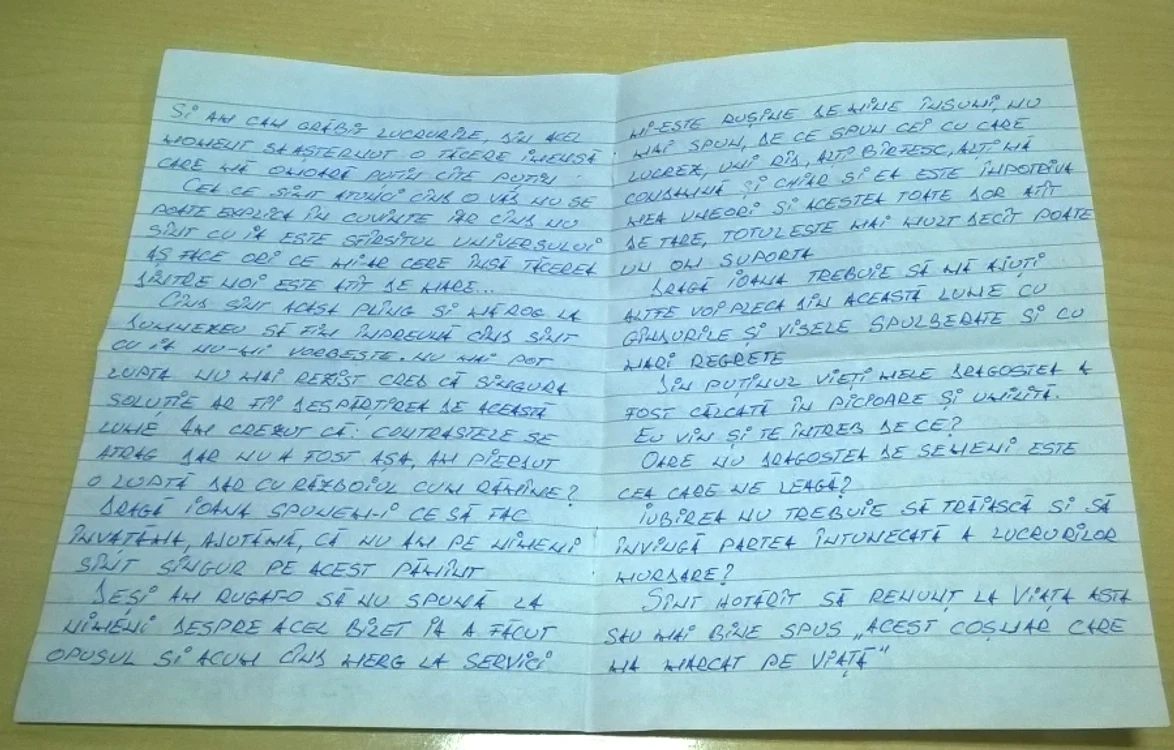 Și AM CAM GRĂBIT LUCRURILE, DIN ACEL
MOMENT SA AȘTERNUT O TĂCERE IMENSĂ
CARE MĂ OMOARĂ PUȚIN CÎTE PUȚIN.
CEA CE SÎMT ATUNCI CÎND O VĂD NU SE
POATE EXPLICA ÎN CUVINTE IAR CÎND NU
SÎNT CU IA ESTE SFÎRȘITUL UNIVERSULUI
AȘ FACE ORI CE MIAR CERE ÎNSĂ TĂCEREA
DINTRE NOI ESTE ATÎT DE MARE...
CÎND SÎNT ACASA PLÎNG ȘI MĂ ROG LA
DUMNEZEU SĂ FIN ÎMPREUNĂ CÎND SÎNT
CU IA NU-MI VORBEȘTE. NU MAI POT
LUPTA NU MAI REZIST CRED CĂ SINGURA
SOLUȚIE AR FII DESPĂRȚIREA DE ACEASTĂ
LUME AM CREZUT CĂ: CONTRASTELE SE
ATRAG DAR NU A FOST AȘA, AM PIERDUT
O LUPTĂ DAR CU RĂZBOIUL CUM RĂMÎNE?
DRAGĂ IOANA SPUNEM-I CE SĂ FAC
ÎNVAȚĂMA, AJUTĂMĂ, CĂ NU AM PE NIMENI
SÎNT SINGUR PE ACEST PĂMÎNT
DEȘI AM RUGAT-O SĂ NU SPUNĂ LA
NIMENI DESPRE ACEL BILET IA A FĂCUT
OPUSUL ȘI ACUM CÎND MERG LA SERVICI
MI-ESTE RUȘINE DE MINE ÎNSUMI, NU
MAI SPUN, DE CE SPUN CEI CU CARE
LUCREZ, UNII RÎD, ALȚI BÎRFESC, ALȚI MĂ
CONDAMNĂ ȘI CHIAR ȘI EA ESTE ÎMPOTRIVA
MEA UNEORI ȘI ACESTEA TOATE DOR ATÎT
DE TARE, TOTUL ESTE MAI MULT DECÎT POATE
UN OM SUPORTA
DRAGĂ IOANA TREBUIE SĂ MĂ AJUȚI
ALTFE VOI PLECA DIN ACEASTĂ LUME CU
GÎNDURILE ȘI VISELE SPULBERATE ȘI CU
MARI REGRETE
DIN PUȚINUL VIEȚI MELE DRAGOSTEA A
FOST CĂLCATĂ ÎN PICIOARE ȘI UMILITĂ.
EU VIN ȘI TE ÎNTREB DE CE?
OARE NU DRAGOSTEA DE SEMENI ESTE
CEA CARE NE LEAGĂ?
IUBIREA NU TREBUIE SĂ TRĂIASCĂ ȘI SĂ
ÎNVINGĂ PARTEA ÎNTUNECATĂ A LUCRURILOR
MURDARE?
SÎNT HOTĂRÎT SĂ RENUNȚ LA VIAȚA ASTA
SAU MAI BINE SPUS „ACEST COȘMAR CARE
MA MARCAT PE VIAȚĂ"